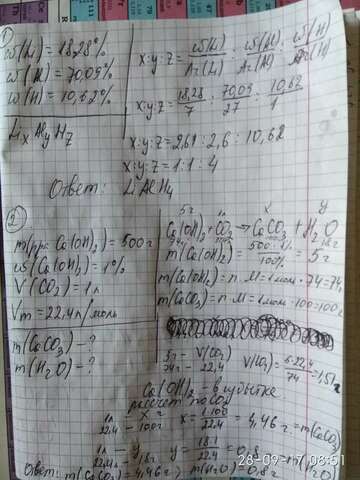 1
ω(Li) = 18,28%
ω(Al) = 70,09%
ω(H) = 10,62%
LixAlyHz
x:y:z = ω(Li)/Ar(Li) : ω(Al)/Ar(Al) : ω(H)/Ar(H)
x:y:z = 18,28/7 : 70,09/27 : 10,62/1
x:y:z = 2,61 : 2,6 : 10,62
x:y:z = 1:1:4
Ответ: LiAlH4
2
m(р-ра Ca(OH)2) = 500г
ω(Ca(OH)2) = 1%
V(CO2) = 1л
Vm = 22,4л/моль
m(CaCO3) - ?
m(H2O) - ?
5г 1л x y
Ca(OH)2 + CO2 → CaCO3 + H2O
m(Ca(OH)2) = 500·1%/100% = 5г
m(Ca(OH)2) = n·M = 1моль·74 = 74г
m(CaCO3) = n·M = 1моль·100 = 100г
5г/74г - V(CO2)/22,4 V(CO2) = 5·22,4/74 = 1,51л
Ca(OH)2 - в избытке
1л/22,4 - x/100г x = 1·100/22,4 = 4,46г = m(CaCO3)
1л/22,4л - y/18г y = 18·1/22,4 = 0,8г = m(H2O)
Ответ: m(CaCO3) = 4,46г; m(H2O) = 0,8г
28-09-17 08:51